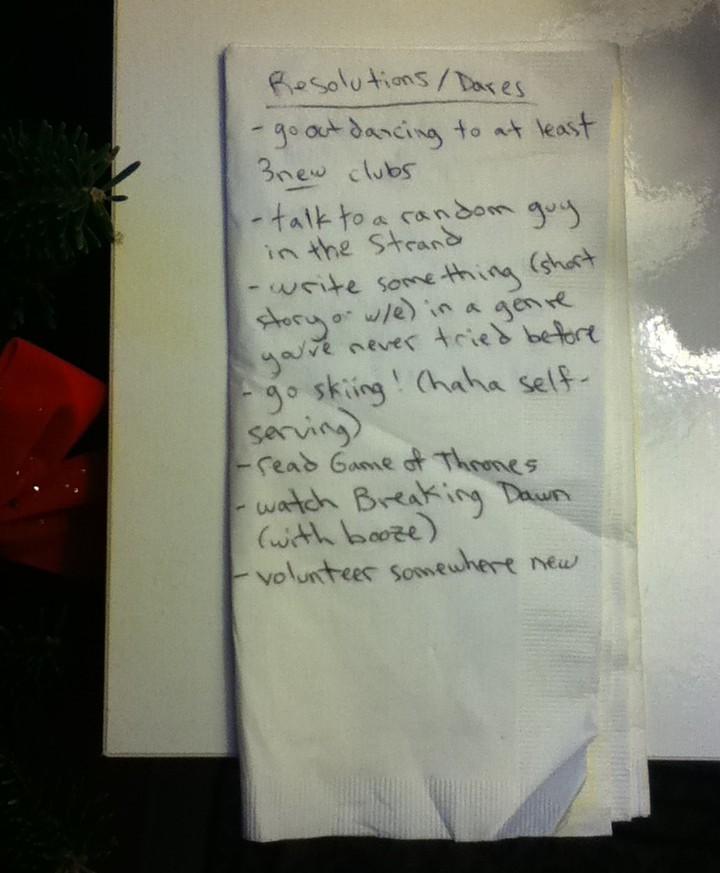 Resolutions/Dares
- go out dancing to at least
3 new clubs
- talk to a random guy
in the Strand
- write something (short
story or w/e) in a genre
you've never tried before
- go skiing! (haha self-
serving)
- read Game of Thrones
- watch Breaking Dawn
(with booze)
- volunteer somewhere new